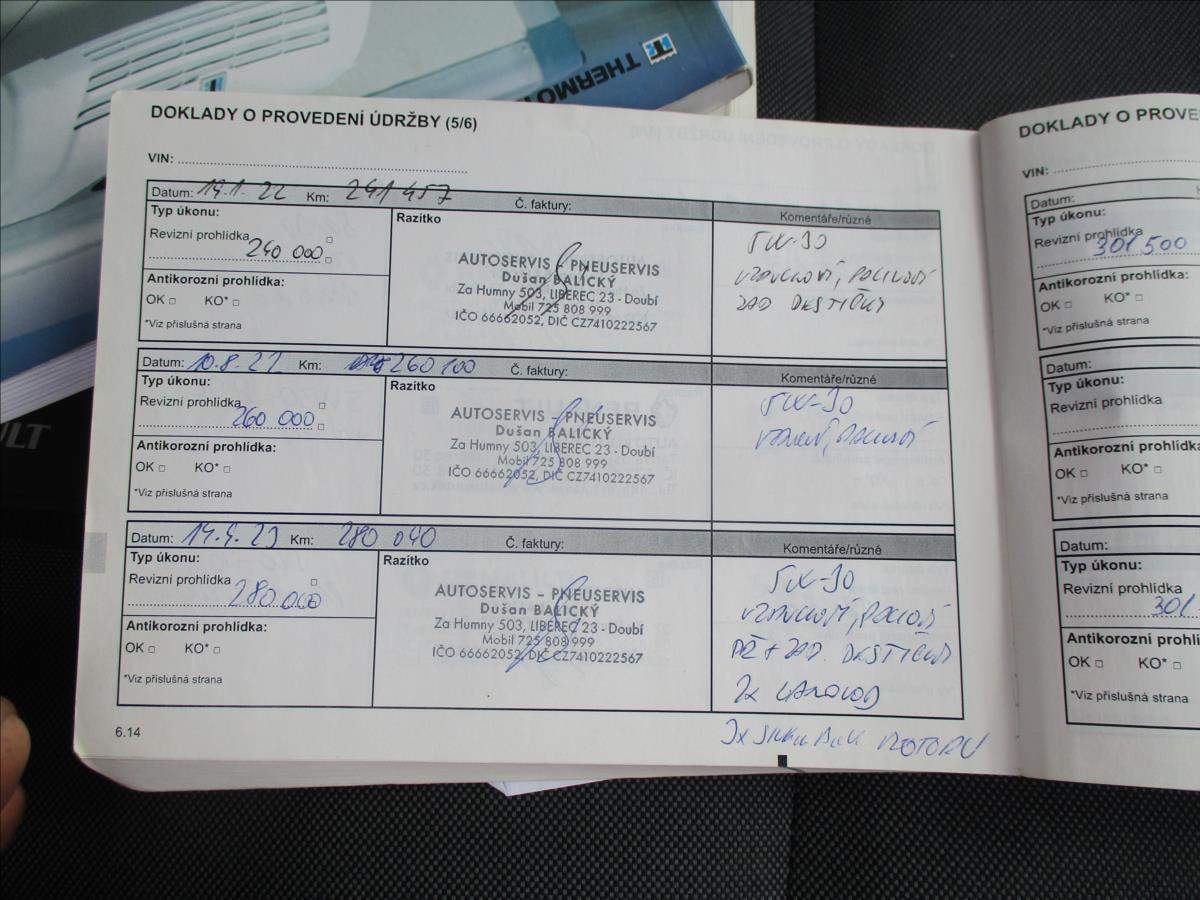 THERMO
DOKLADY O PROVEDENÍ ÚDRŽBY (5/6)
VIN:
Datum: 19.1.22 Km: 241 457 Č. faktury:
Typ úkonu:
Revizní prohlídka
240 000
Antikorozní prohlídka:
OK KO*
*Viz příslušná strana
Razítko
AUTOSERVIS - PNEUSERVIS
Dušan BALICKÝ
Za Humny 503, LIBEREC 23 - Doubí
Mobil 725 808 999
IČO 66662052, DIČ CZ7410222567
Komentáře/různé
5W-30
ZAD DESTIČKY
Datum: 10.8.22 Km: 260 100 Č. faktury:
Typ úkonu:
Revizní prohlídka
260 000
Antikorozní prohlídka:
OK KO*
*Viz příslušná strana
Razítko
AUTOSERVIS - PNEUSERVIS
Dušan BALICKÝ
Za Humny 503, LIBEREC 23 - Doubí
Mobil 725 808 999
IČO 66662052, DIČ CZ7410222567
Komentáře/různé
5W-30
Datum: Km: 280 040 Č. faktury:
Typ úkonu:
Revizní prohlídka
280 000
Antikorozní prohlídka:
OK KO*
*Viz příslušná strana
Razítko
AUTOSERVIS - PNEUSERVIS
Dušan BALICKÝ
Za Humny 503, LIBEREC 23 - Doubí
Mobil 725 808 999
IČO 66662052, DIČ CZ7410222567
Komentáře/různé
5W-30
PŘ + ZAD. DESTIČKY
MOTORU
6.14
DOKLADY O PROVE
VIN:
Datum:
Typ úkonu:
Revizní prohlídka
301 500
Antikorozní prohlídka:
OK KO*
*Viz příslušná strana
Datum:
Typ úkonu:
Revizní prohlídka
Antikorozní prohlídka
OK KO*
*Viz příslušná strana
Datum:
Typ úkonu:
Revizní prohlídka
301
Antikorozní prohlídka
OK KO*
*Viz příslušná strana